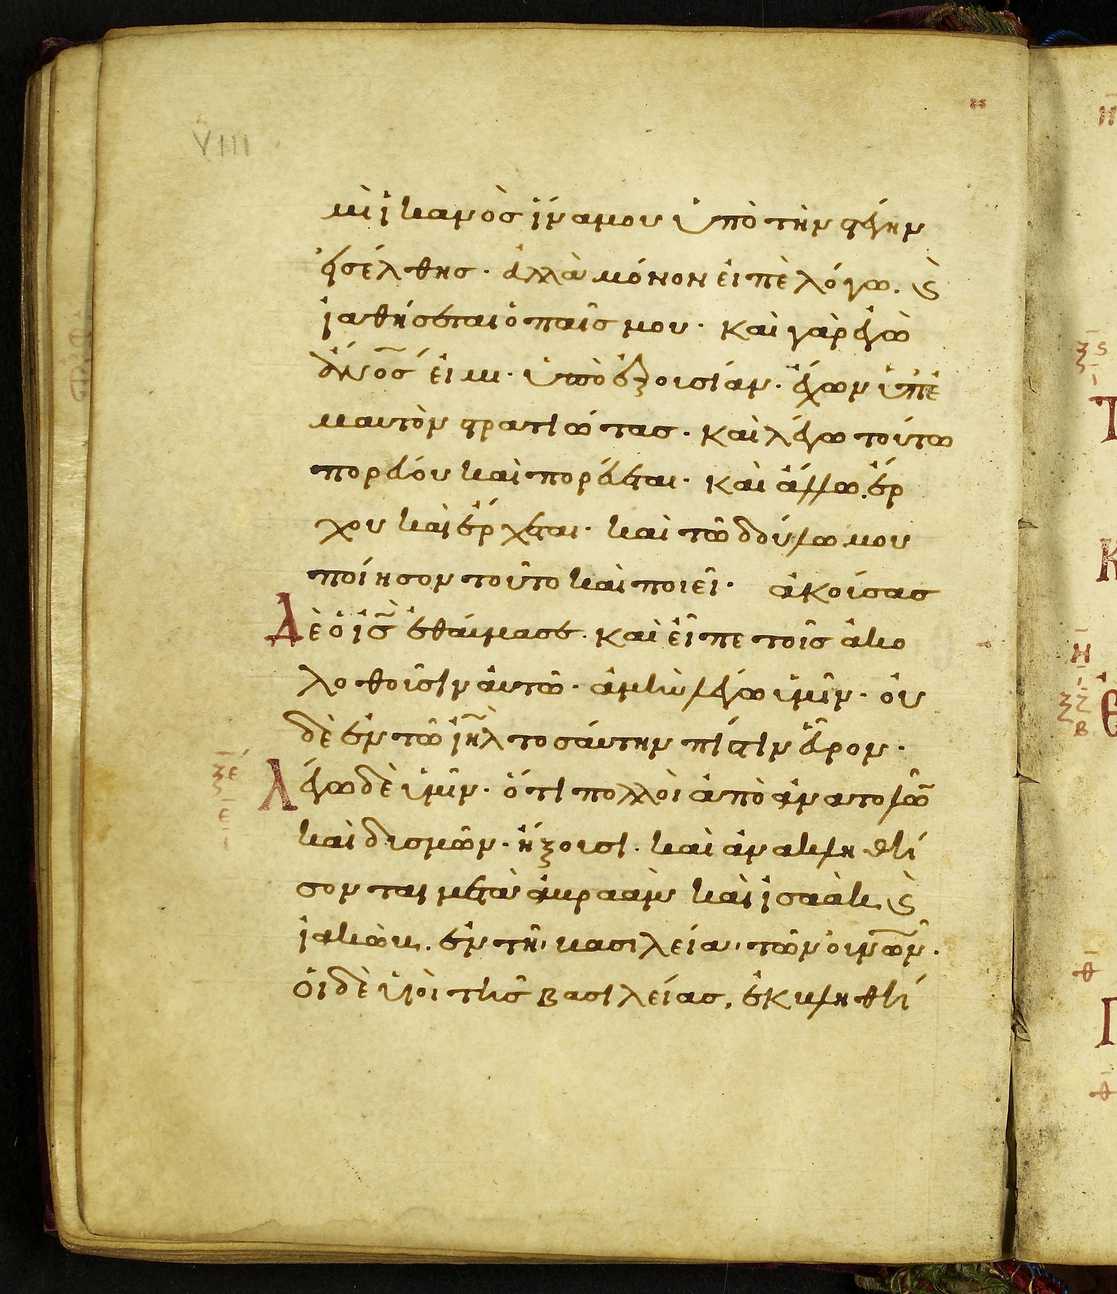 VIII
μὶ ἱκανὸσ ἵνα μου ὑπὸ τὴν στέγην
εἰσέλθησ· ἀλλὰ μόνον εἰπὲ λόγω. ϗ
ἰαθήσεται ὁ παῖσ μου· καὶ γὰρ ἐγὼ
ἄν̅ο̅σ̅ εἰμι· ὑπὸ ἐξουσίαν· ἔχων ὑπ' ἐ
μαυτὸν στρατιώτασ· καὶ λέγω τούτω
πορεύου καὶ πορεύεται· καὶ ἄλλω. ἔρ
χου καὶ ἔρχεται· καὶ τῶ δούλω μου
ποίησον τοῦτο καὶ ποιεῖ· ἀκούσασ
Δὲ ὁ ι̅σ̅ ἐθαύμασε. καὶ εἶπε τοῖσ ἀκο
λοθοῦσιν αὐτῶ· ἀμὴν λέγω ὑμῖν· οὐ
δὲ ἐν τῶ ι̅η̅λ̅ τοσαύτην πίστιν εὗρον·
ξε
ε
ι
Λέγω δὲ ὑμῖν· ὅτι πολλοὶ ἀπὸ ἀνατολῶ̅
καὶ δυσμῶν· ἥξουσι· καὶ ἀνακληθή
σονται μετὰ ἀβραὰμ καὶ ἰσαὰκ ϗ
ἰακὼβ. ἐν τῆ βασιλεία τῶν οὐ̅ν̅ῶ̅ν̅·
Οἱ δὲ υἱοὶ τῆσ βασιλείασ, ἐκβληθή